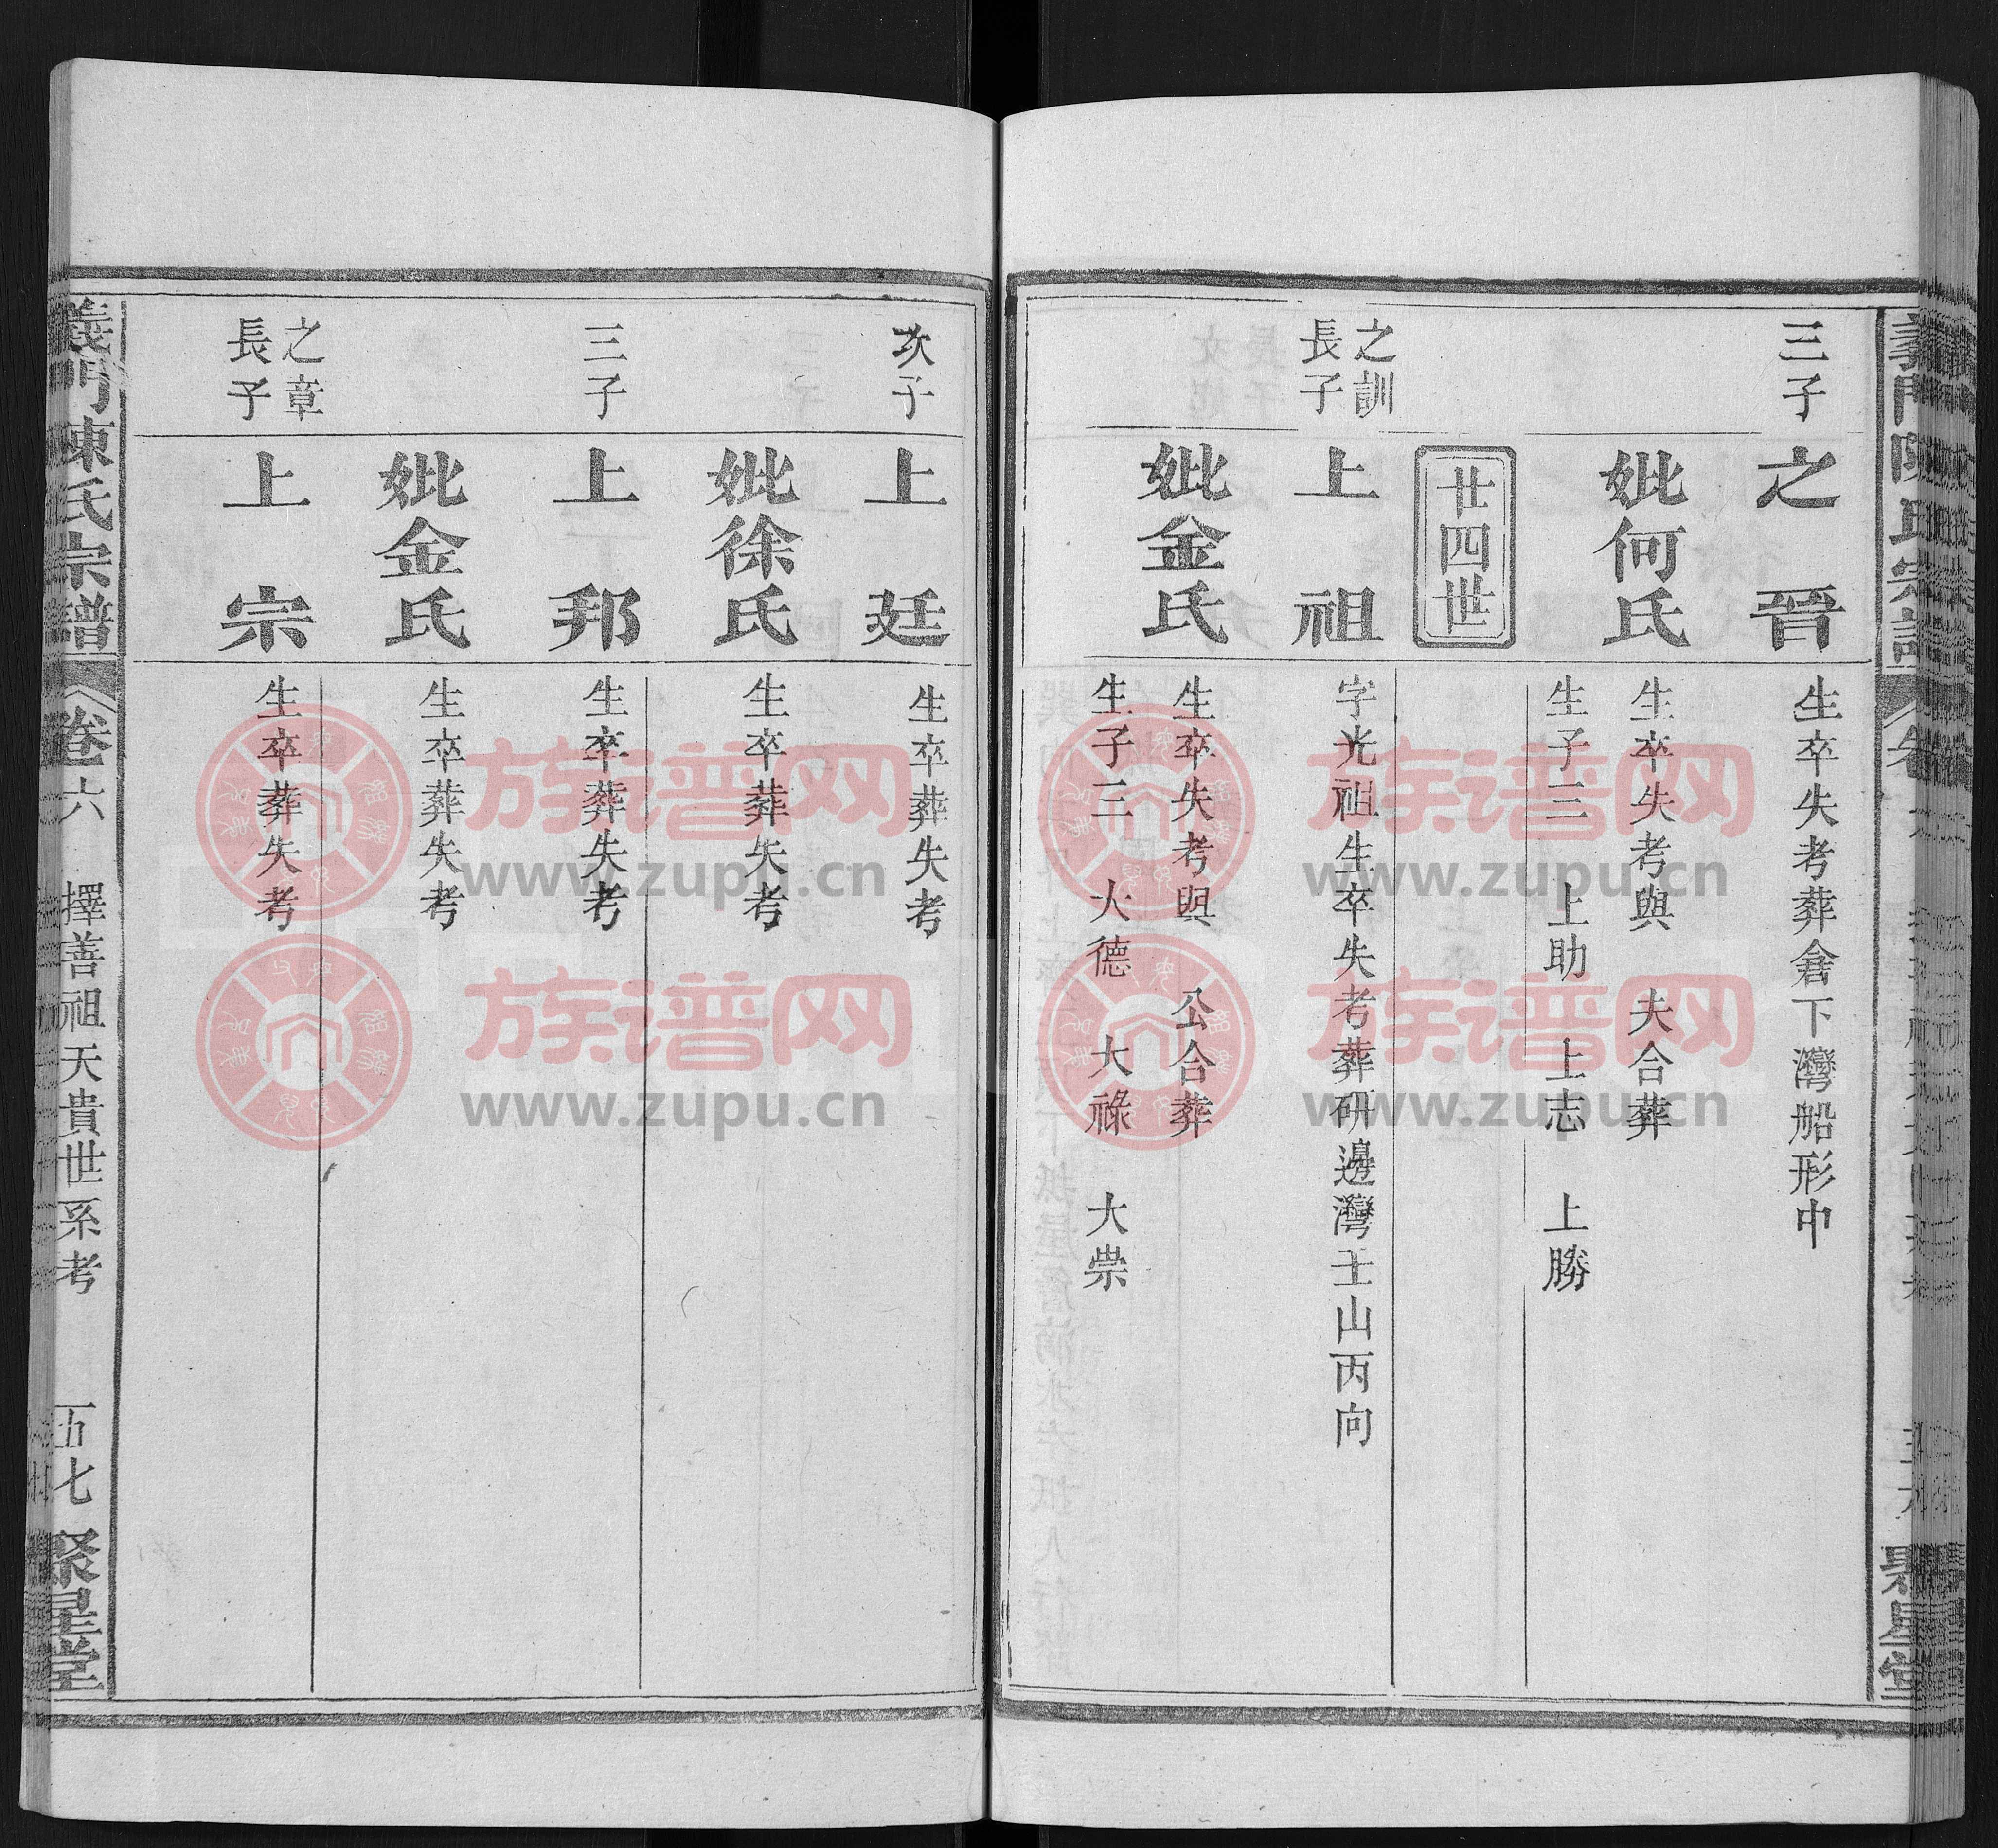 三子
之晉
生卒失考葬倉下灣船形中
妣何氏
生卒失考與 夫合葬
生子三 上助 上志 上勝
廿四世
之訓
長子
上祖
字光祖生卒失考葬研邊灣壬山丙向
妣金氏
生卒失考與 公合葬
生子三 大德 大祿 大崇
次子
上廷
生卒葬失考
妣徐氏
生卒葬失考
三子
上邦
生卒葬失考
妣金氏
生卒葬失考
之章
長子
上宗
生卒葬失考
義門陳氏宗譜 卷六 擇善祖天貴世系考 五七 聚星堂
族谱网
www.zupu.cn
族谱网
www.zupu.cn
族谱网
www.zupu.cn
族谱网
www.zupu.cn